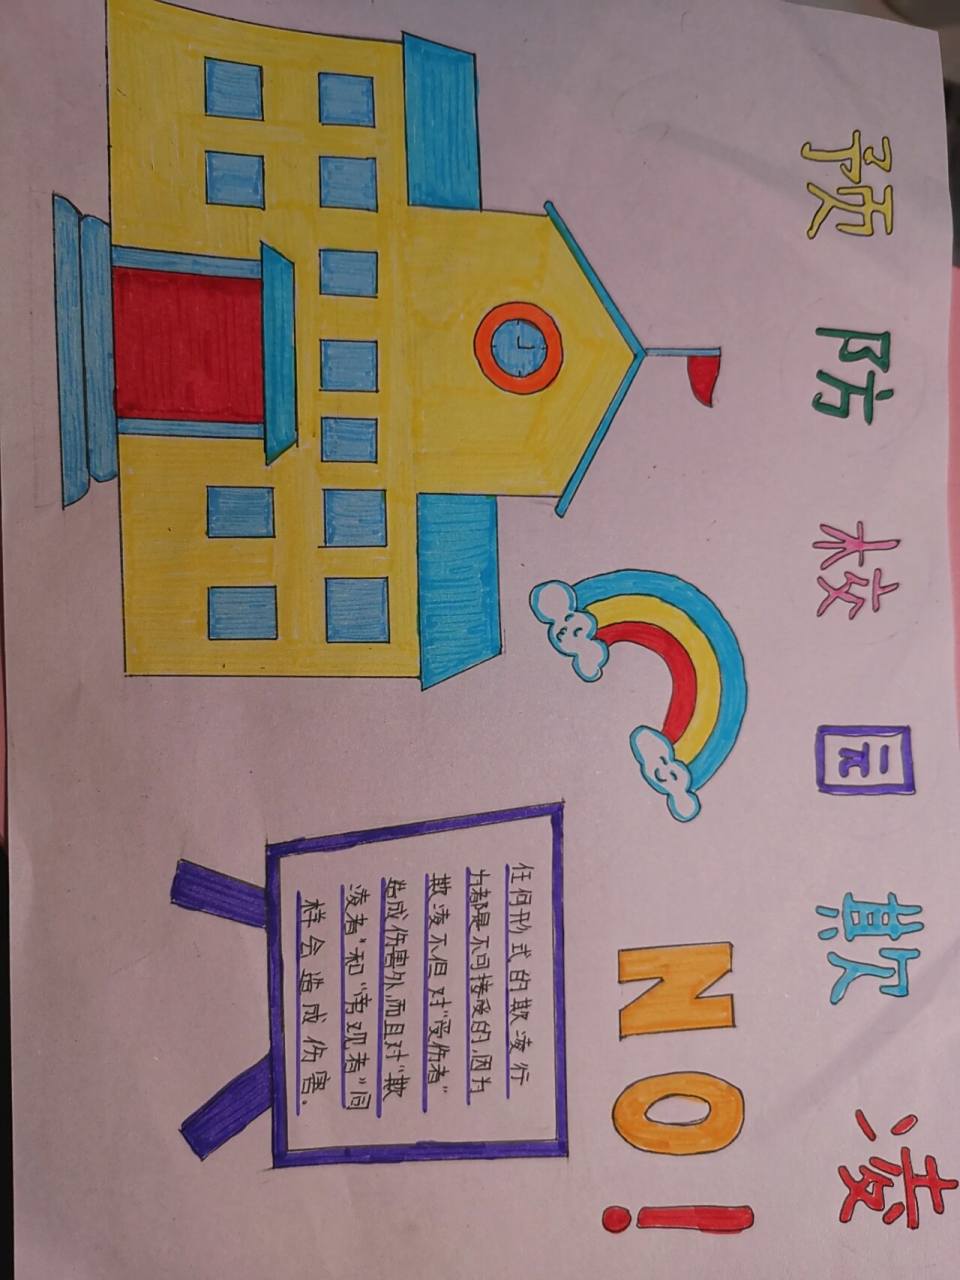 预防校园欺凌
NO!
任何形式的欺凌行
为都是不可接受的,因为
欺凌不但对“受伤者”
造成伤害外,而且对“欺
凌者”和“旁观者”同
样会造成伤害.